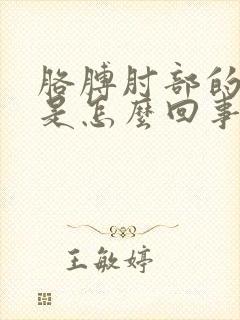 胳膊肘部的
是怎麽回事
王敏婷